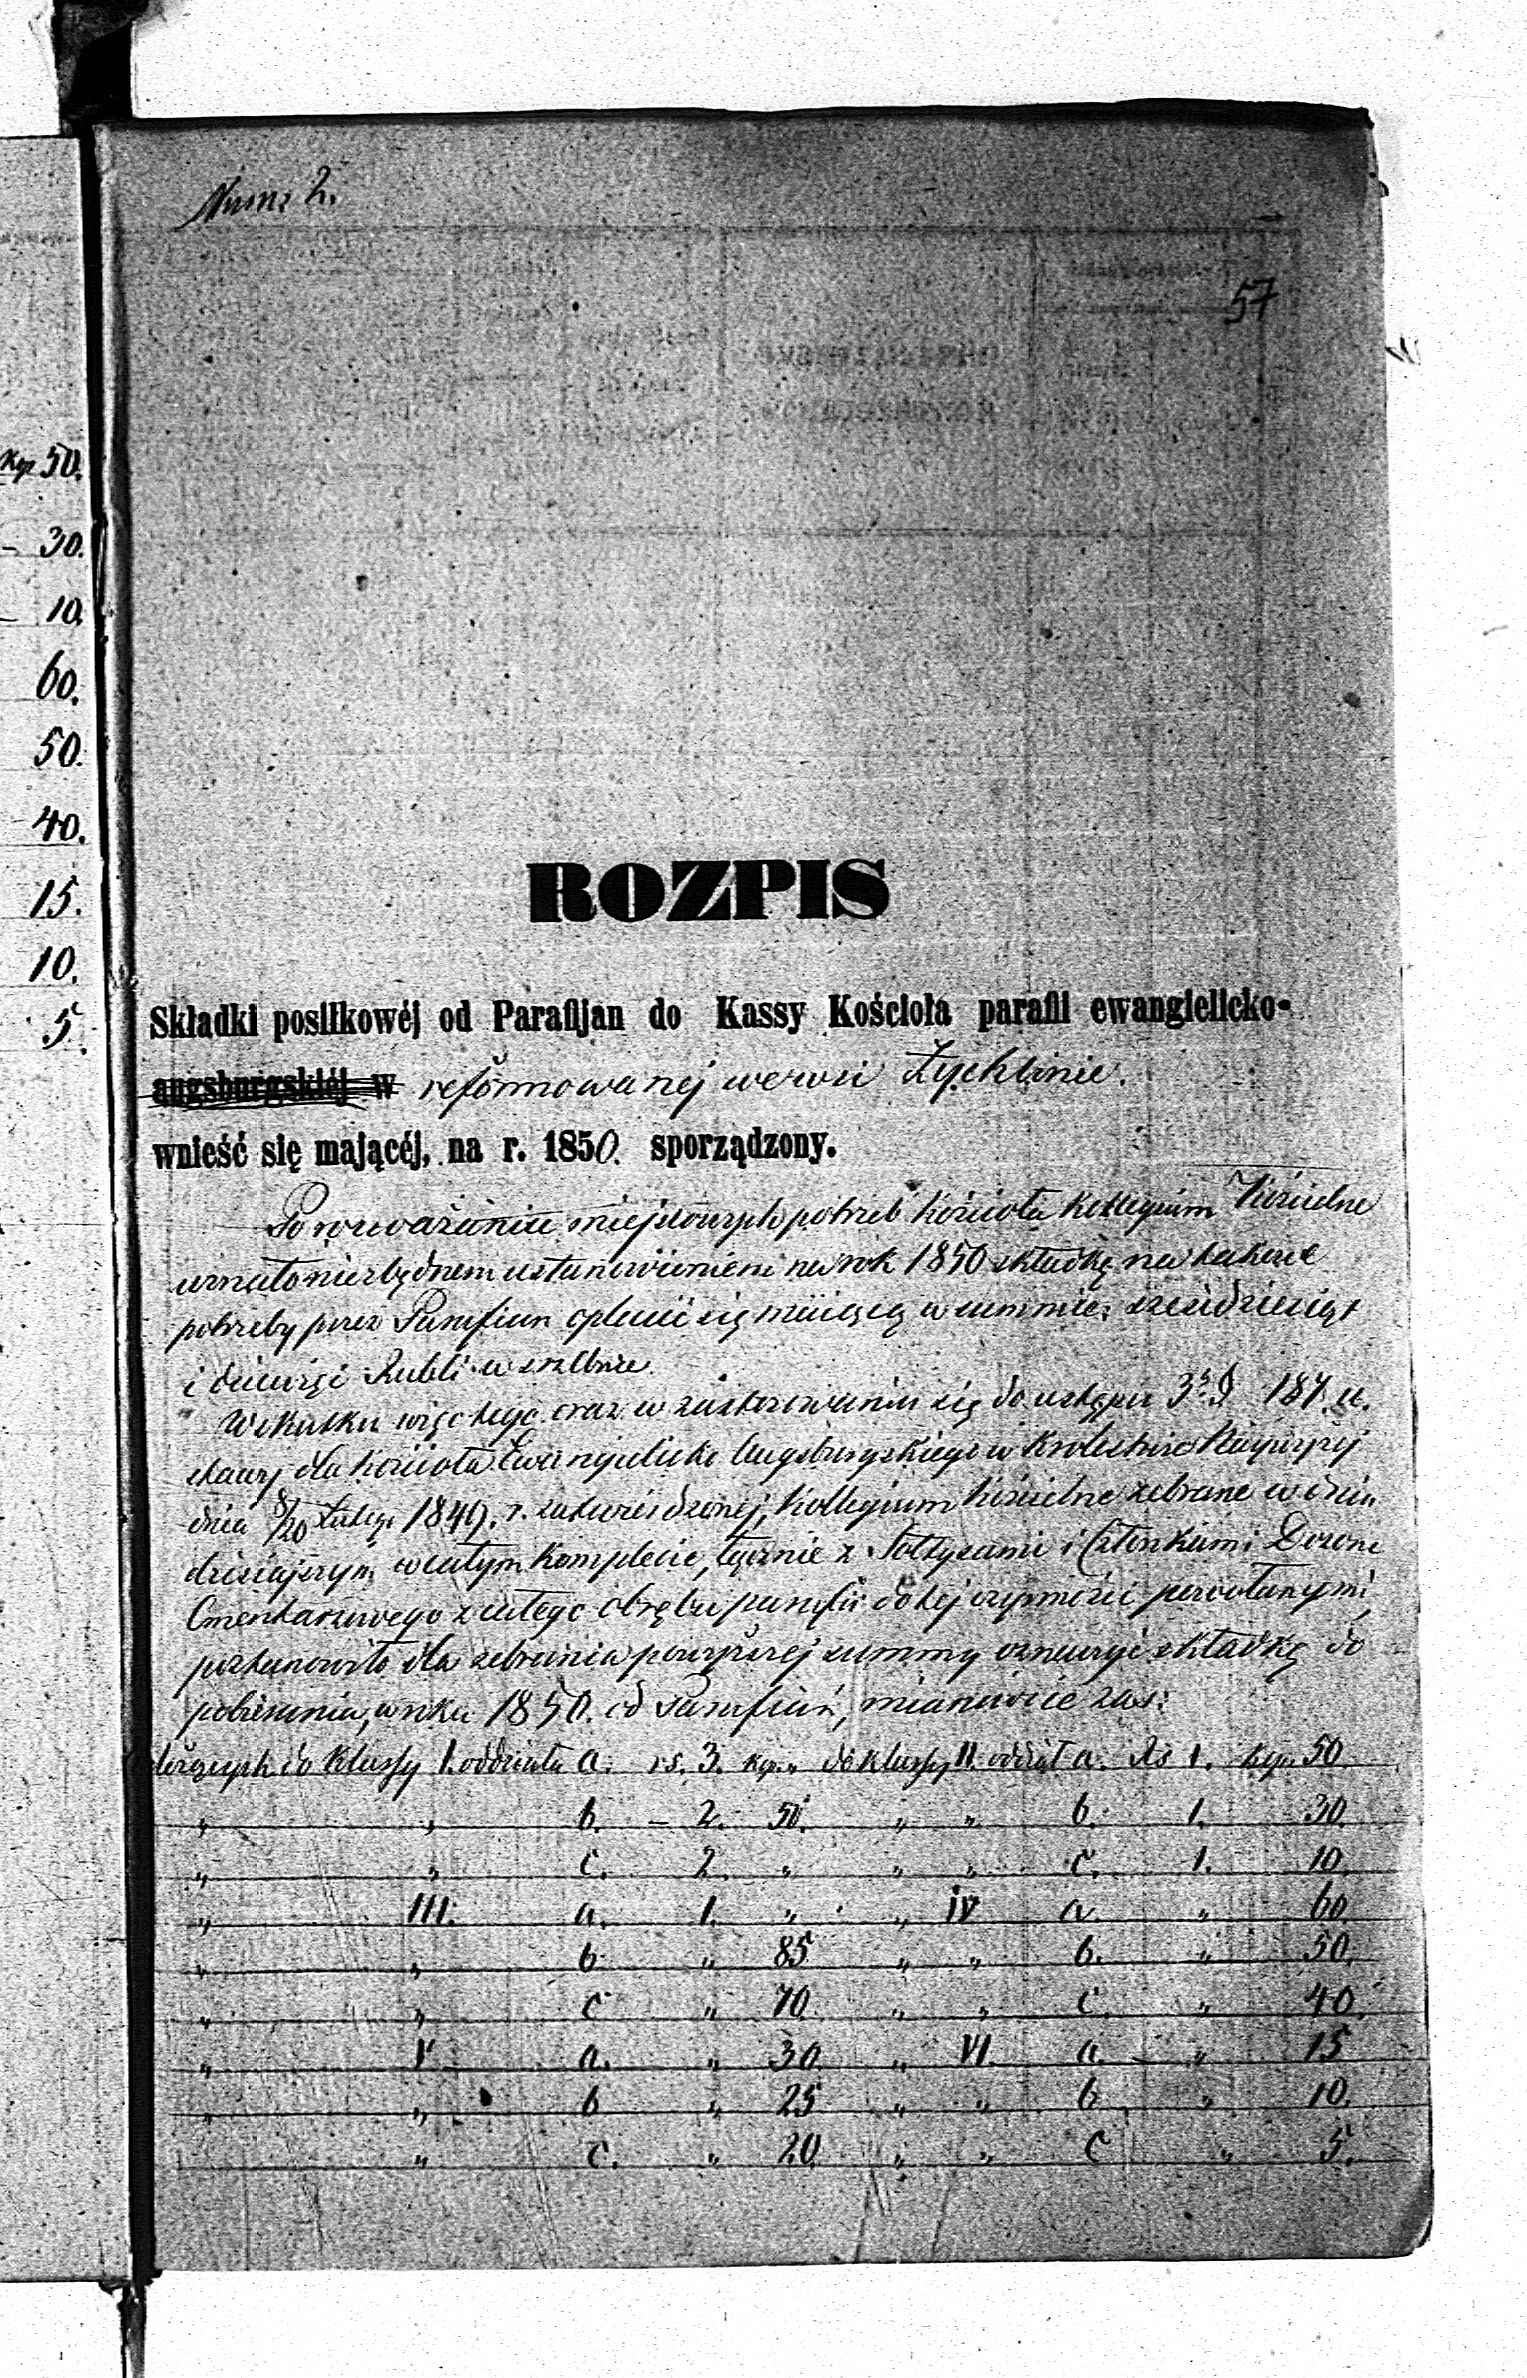 Num: 2.
57
Kop 50.
- 30.
- 10.
60.
50.
- 40.
15.
10.
5.
ROZPIS
Składki posiłkowéj od Parafijan do Kassy Kościoła parafii ewangielicko-
augsburgskiéj w reformowanej we wsi Żychlinie.
wnieść się mającéj, na r. 1850. sporządzony.
Po rozważeniu miejscowych potrzeb kościoła Kollegium Kościelne
uznało niezbędnem ustanowienie na rok 1850 składkę na takowe
potrzeby przez Parafian opłacić się mającą w summie: sześćdziesiąt
i dziewięć Rubli w srebrze.
W skutku więc tego oraz w zastosowaniu się do ustępu 3º § 187. u.
stawy dla kościoła Ewangielicko Augsburgskiego w Królestwie Najwyżej
dnia 8/20 Lutego 1849. r. zatwierdzonej, Kollegium kościelne zebrane w dniu
dzisiejszym w całym komplecie, łącznie z Sołtysami i Członkami Dozoru
Cmentarzowego z całego obrębu parafii do tej czynności powołanymi,
postanowiło dla zebrania powyższej summy oznaczyć składkę do
pobierania, w roku 1850. od Parafian, mianowicie zaś:
do klassy I. oddziału a. rs. 3. kop. „ do klassy II. oddział a. Rs 1. kop. 50
„ „ b. – 2. 50. „ „ b. 1. 30.
„ „ c. 2. „ „ „ c. 1. 10.
„ III. a. 1. „ „ IV a. „ 60
„ „ b „ 85 „ „ b. „ 50.
„ „ c „ 70. „ „ c. „ 40.
„ V a. „ 30 „ VI a. – „ 15
„ „ b „ 25 „ „ b „ 10.
„ c. „ 20 „ „ c „ 5.